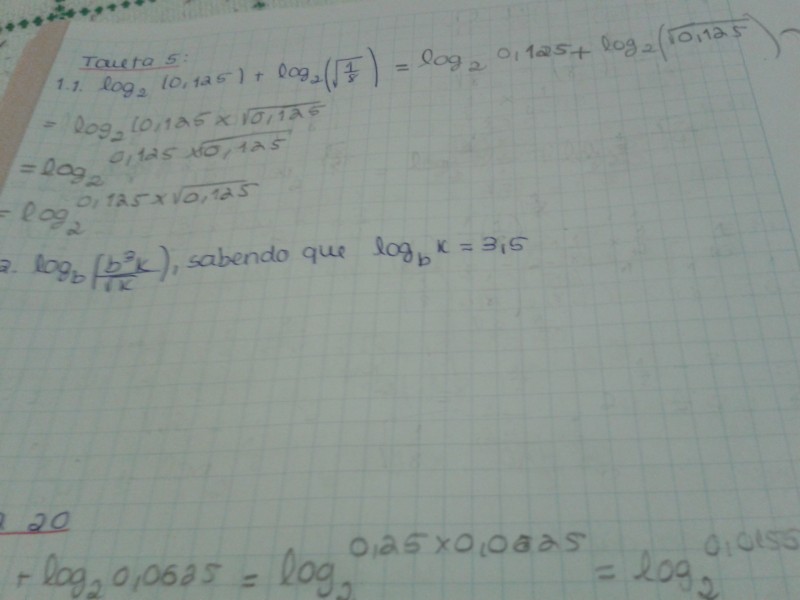 Tarefa 5:
1.1. log₂ (0,125) + log₂(√(1/8)) = log₂ 0,125 + log₂(√0,125)
= log₂ (0,125 × √0,125
= log₂ 0,125 × √0,125
= log₂ 0,125 × √0,125
2. log_b (b³k/√k), sabendo que log_b k = 3,5
20
+ log₂ 0,0625 = log₂ 0,25 × 0,0625 = log₂ 0,0155